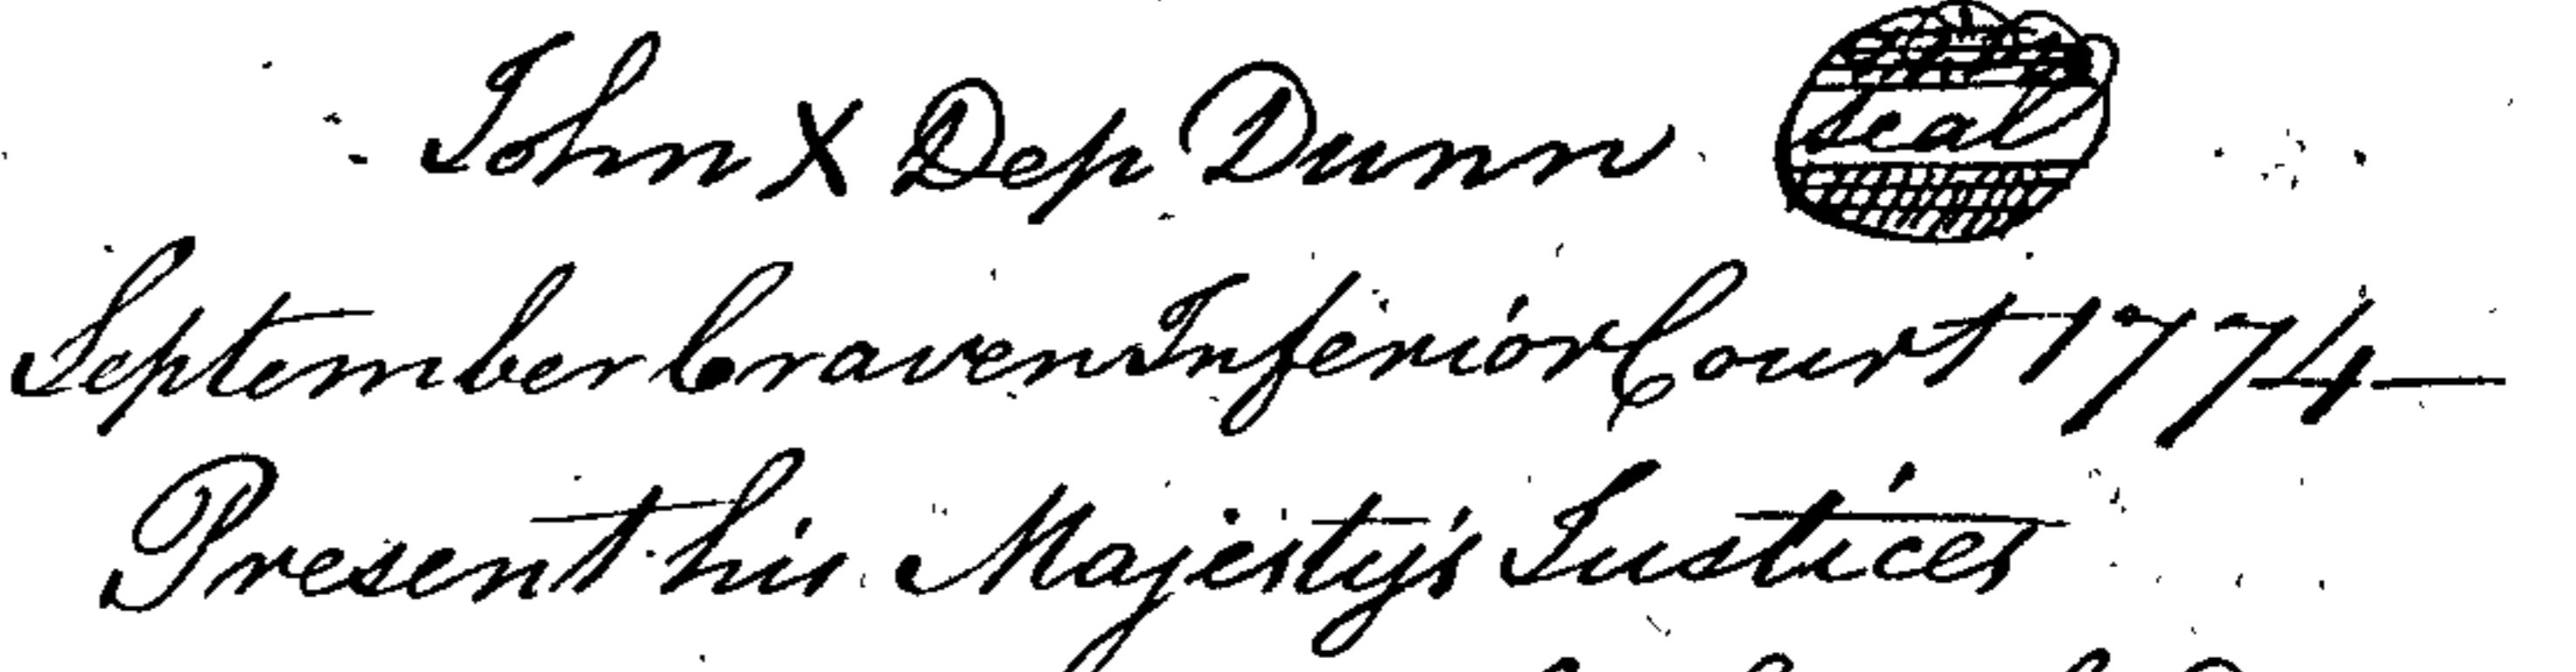 John X Dep Dunn seal
September Craven Inferior Court 1774—
Present his Majesty's Justices